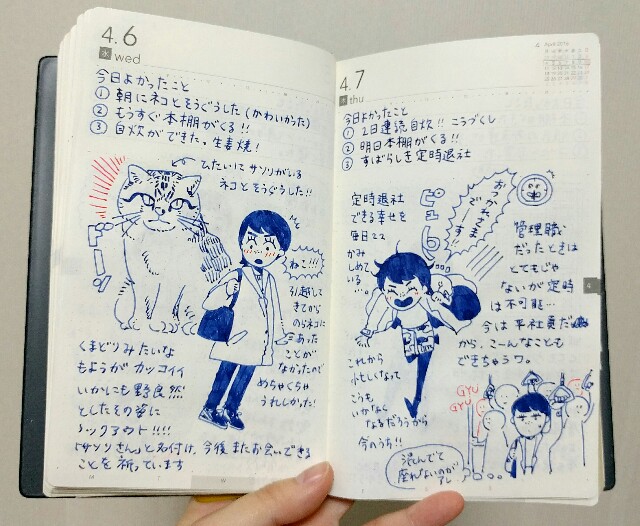 4.6
水 wed
今日よかったこと
① 朝にネコとそうぐうした(かわいかった)
② もうすぐ本棚がくる!!
③ 自炊ができた。生姜焼!
ひたいにサソリがいる
ネコとそうぐうした!!
ドーン
ねこ!!!
引越して
きてから
のらネコに
あった
ことが
なかったので
めちゃくちゃ
うれしかった!
くまどりみたいな
もようがカッコイイ
いかにも野良然
としたその姿に
ノックアウト!!!!
「サソリさん」と名付け、今後またお会いできる
ことを祈っています
4.7
木 thu
April 2016
今日よかったこと
① 2日連続自炊!! こうづくし
② 明日本棚がくる!!
③ すばらしき定時退社
定時退社
できる幸せを
毎日
かみ
しめて
いる
おつかれさま
でーす!!
管理職で
だったときは
とてもじゃ
ないが定時
は不可能…
今は平社員だ
から、こーんなことも
できちゃうワ。
これから
忙しくなって
こうも
いかなく
なるだろうから
今のうち!!
GYU
GYU
混んでて
座れないのが
アレ
4